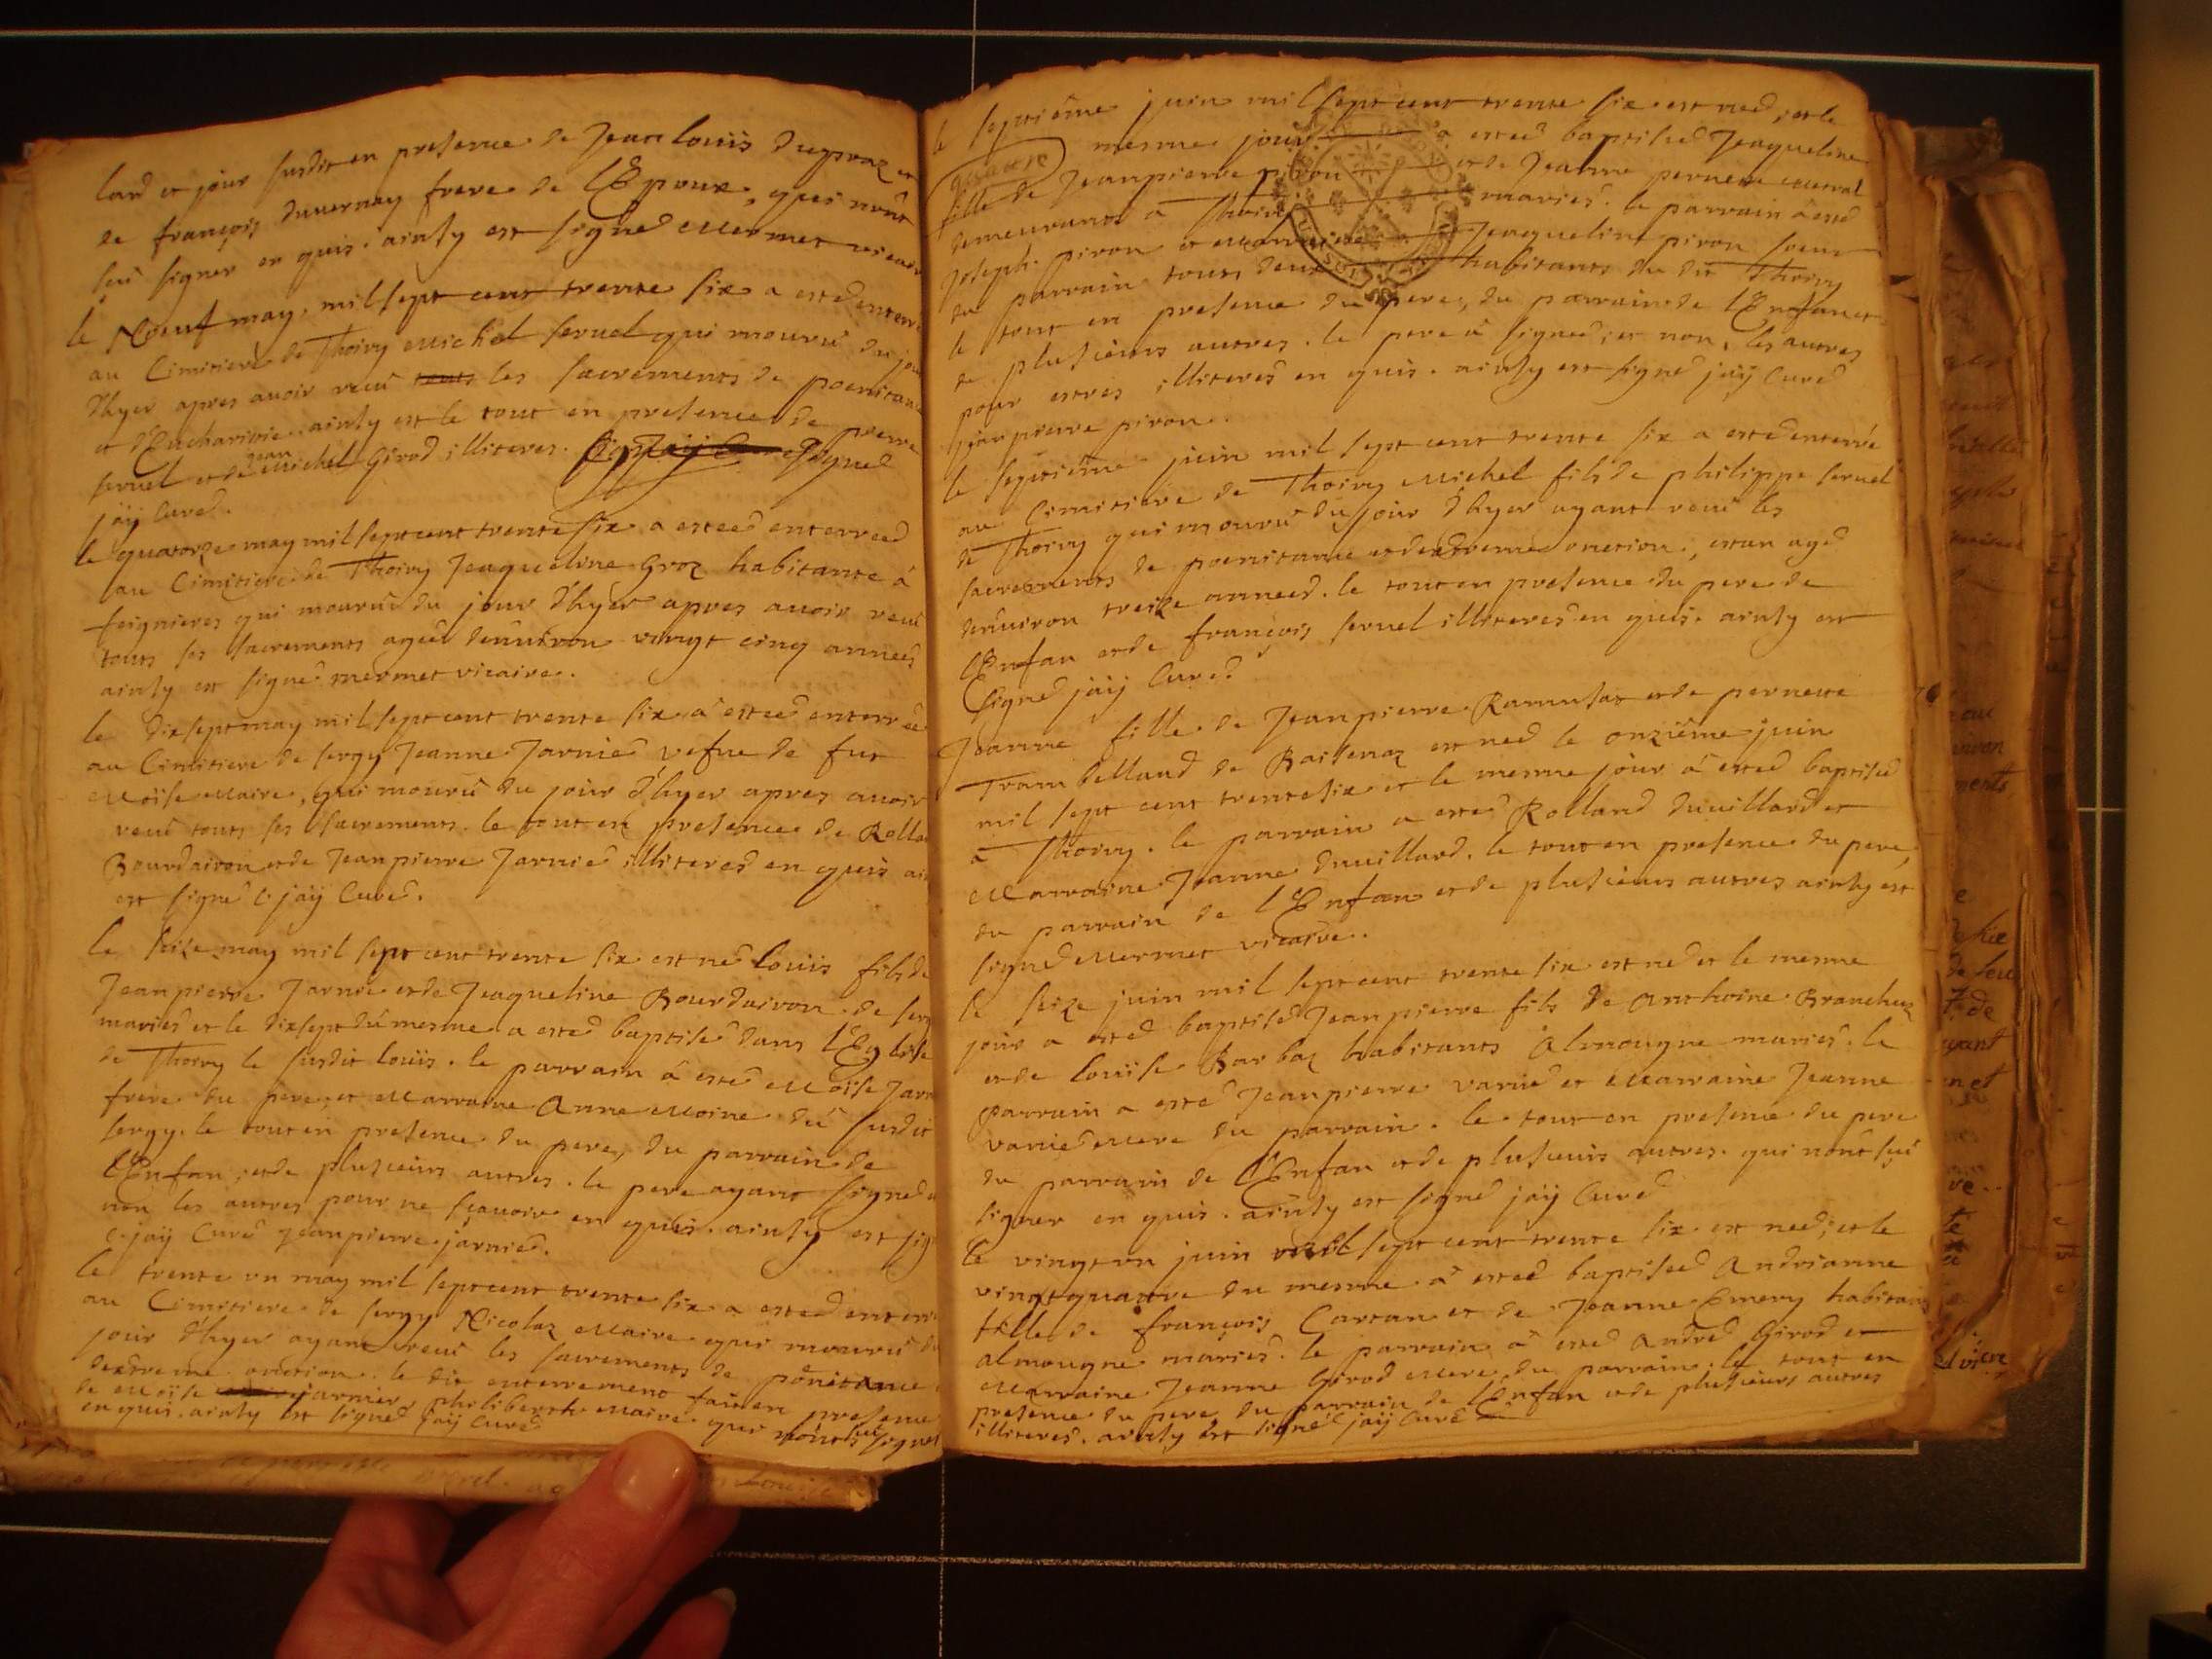 lard et jour susdit en presence de Jean louis Dupraz et
de françois duvernay frere de l'Epoux, qui n'ont
sçeu signer en quis. ainsy est signé Mermet vicaire
le Neuf may, mil sept cent trente six a esté enterré
au Cimitiere de Thoiry Michel servel qui mourû du jour
d'hyer apres avoir reçu touts les sacrements de poenitance
et d'Eucharistie. ainsy est le tout en presence de pierre
servel et de Jean Michel Girod illiteres. signé
jaÿ Curé.
le quatorze may mil sept cent trente six a esteé enterreé
au Cimitiere de Thoiry Jeaqueline Groz habitante â
feignieres qui mourût du jour d'hyer apres avoir reçu
touts ses sacrements ageé d'environ vingt cinq anneés
ainsy est signé mermet vicaire.
le dixsept may mil sept cent trente six a esteé enterreé
au Cimitiere de sergy Jeanne Jarnier vefue de fut
Moïse Maire, qui mourû du jour d'hyer apres avoir
reçu touts ses sacrements. le tout en presence de Rolland
Bourdairon et de Jean pierre Jarnier illiteres en quis
est signé c. jaÿ Curé.
le seize may mil sept cent trente six est né louis fils de
Jean pierre Jarnier et de Jeaqueline Bourdairon de sergy
mariés et le dixsept du mesme a esté baptisé dans l'Eglise
de Thoiry le susdit louïs. le parrain â esté Moïse Jarnier
frere du pere, et Marraine Anne Moine du susdit
sergy. le tout en presence du pere, du parrain de
l'Enfan, et de plusieurs autres. le pere ayant signé et
non les autres pour ne sçavoire en quis. ainsy est signé
c. jaÿ Curé Jean pierre jarnier.
le trente un may mil sept cent trente six a esté enterré
au Cimitiere de sergy Nicolaz Maire qui mourû du
jour d'hyer ayant reçu les sacrements de poenitance
dextreme onction. le dit enterrement fait en presence
de Moïse jarnier, philiberth Maire qui n'ont sçu signer
en quis. ainsy est signé jaÿ Curé
le septiême juin mil sept cent trente six est neé, et le
mesme jour a esteé baptiseé Jeaqueline
fille de Jean pierre piron et de Jeanne pernete
demeurants a Thoiry mariés. le parrain a esté
Joseph piron et Marraine Jeaqueline piron soeur
du parrain touts deux habitants du dit Thoiry
le tout en presence du pere, du parrain de l'Enfan et
de plusieurs autres. le pere a signé; et non, les autres
pour estres illiteres en quis. ainsy est signé jaÿ Curé
jean pierre piron.
le septiême juin mil sept cent trente six a esté enterré
au Cimitiere de Thoiry Michel fils de philippe servel
de Thoiry qui mourû du jour d'hyer ayant reçu les
sacrements de poenitance et d'extreme onction, estan agé
d'environ treize anneés. le tout en presence du pere de
l'Enfan et de françois servel illiteres en quis. ainsy est
signé jaÿ Curé
Jeanne fille de Jean pierre Ramusat et de pernete
Tram belland de Baisenaz est neé le onziême juin
mil sept cent trente six et le mesme jour â esteé baptiseé
â Thoiry. le parrain a esté Rolland Duvillard et
Marraine Jeanne Duvillard. le tout en presence du pere,
du parrain de l'Enfan et de plusieurs autres ainsy est
signé Mermet vicaire.
le seize juin mil sept cent trente six est né et le mesme
jour a esté baptisé Jean pierre fils de Anthoine Branchus
et de louïse Barbaz habitants Almougne mariés. le
parrain a esté Jean pierre varie et Marraine Jeanne
varie mere du parrain. le tout en presence du pere
du parrain de l'Enfan et de plusieurs autres. qui n'ont sçû
signer en quis. ainsy est signé jaÿ Curé
le vingt un juin mil sept cent trente six est neé; et le
vingt quatre du mesme a esteé baptiseé Andrianne
fille de françois Cartan et de Jeanne Emery habitants
Almougne mariés. le parrain â esté André Girod et
Marraine Jeanne Girod mere du parrain. le tout en
presence du pere, du parrain de l'Enfan et de plusieurs autres
illiteres. ainsy est signé jaÿ Curé